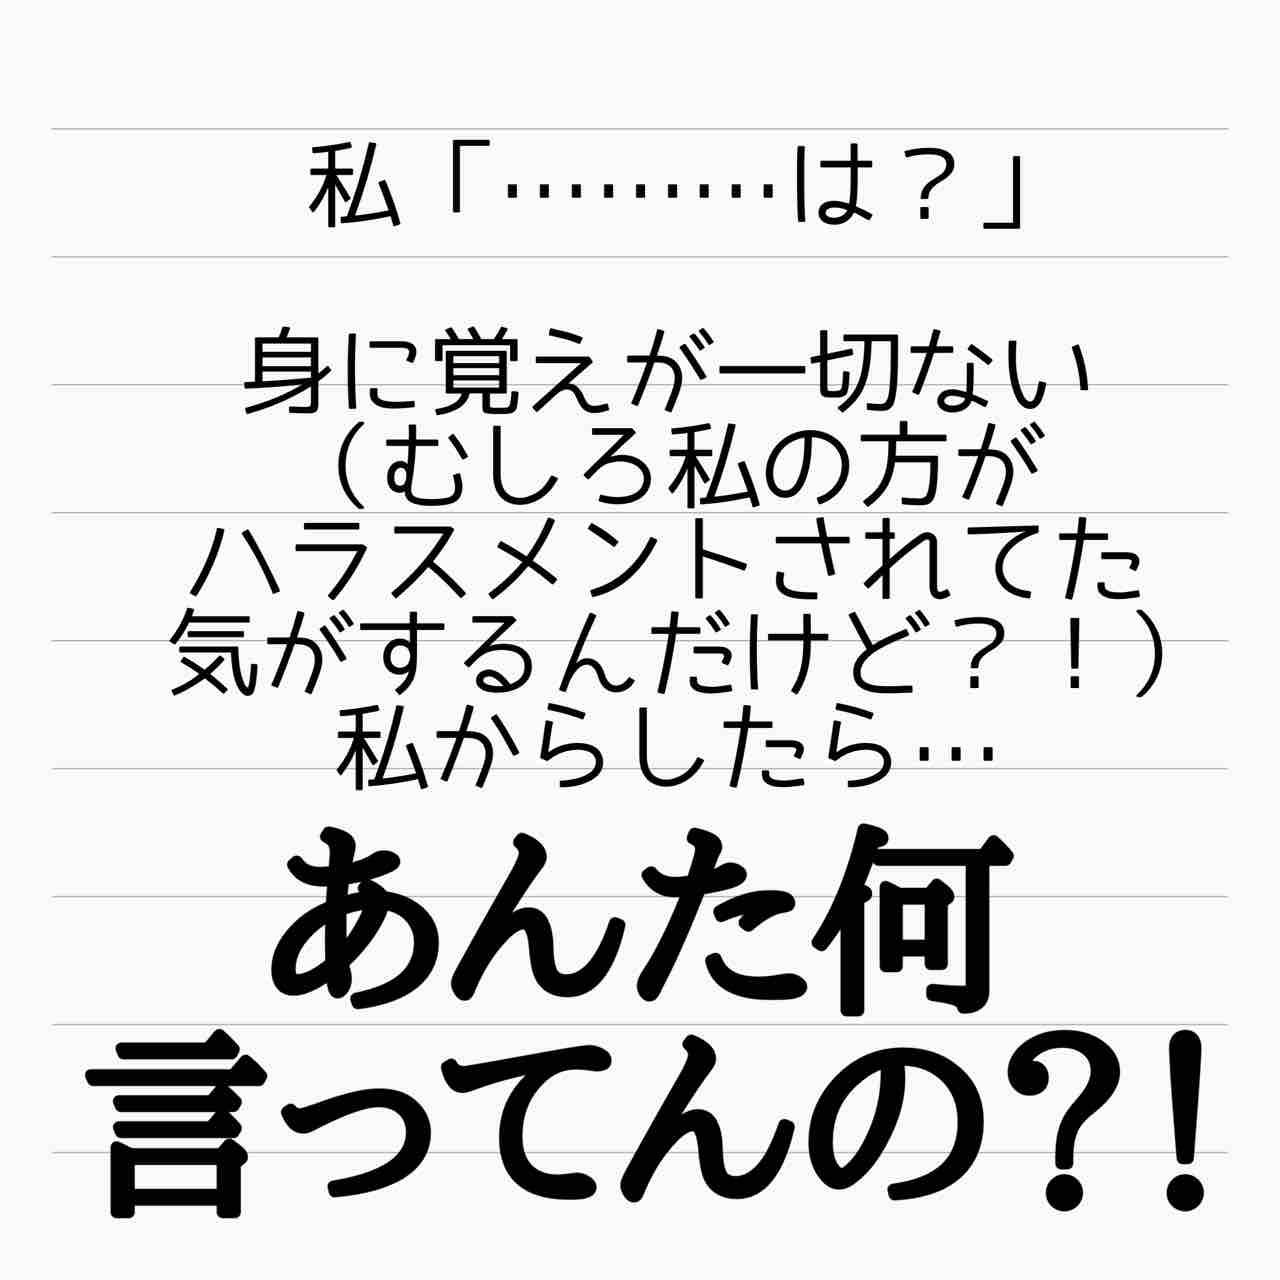 私「………は？」
身に覚えが一切ない
（むしろ私の方が
ハラスメントされてた
気がするんだけど？！）
私からしたら…
あんた何
言ってんの？！